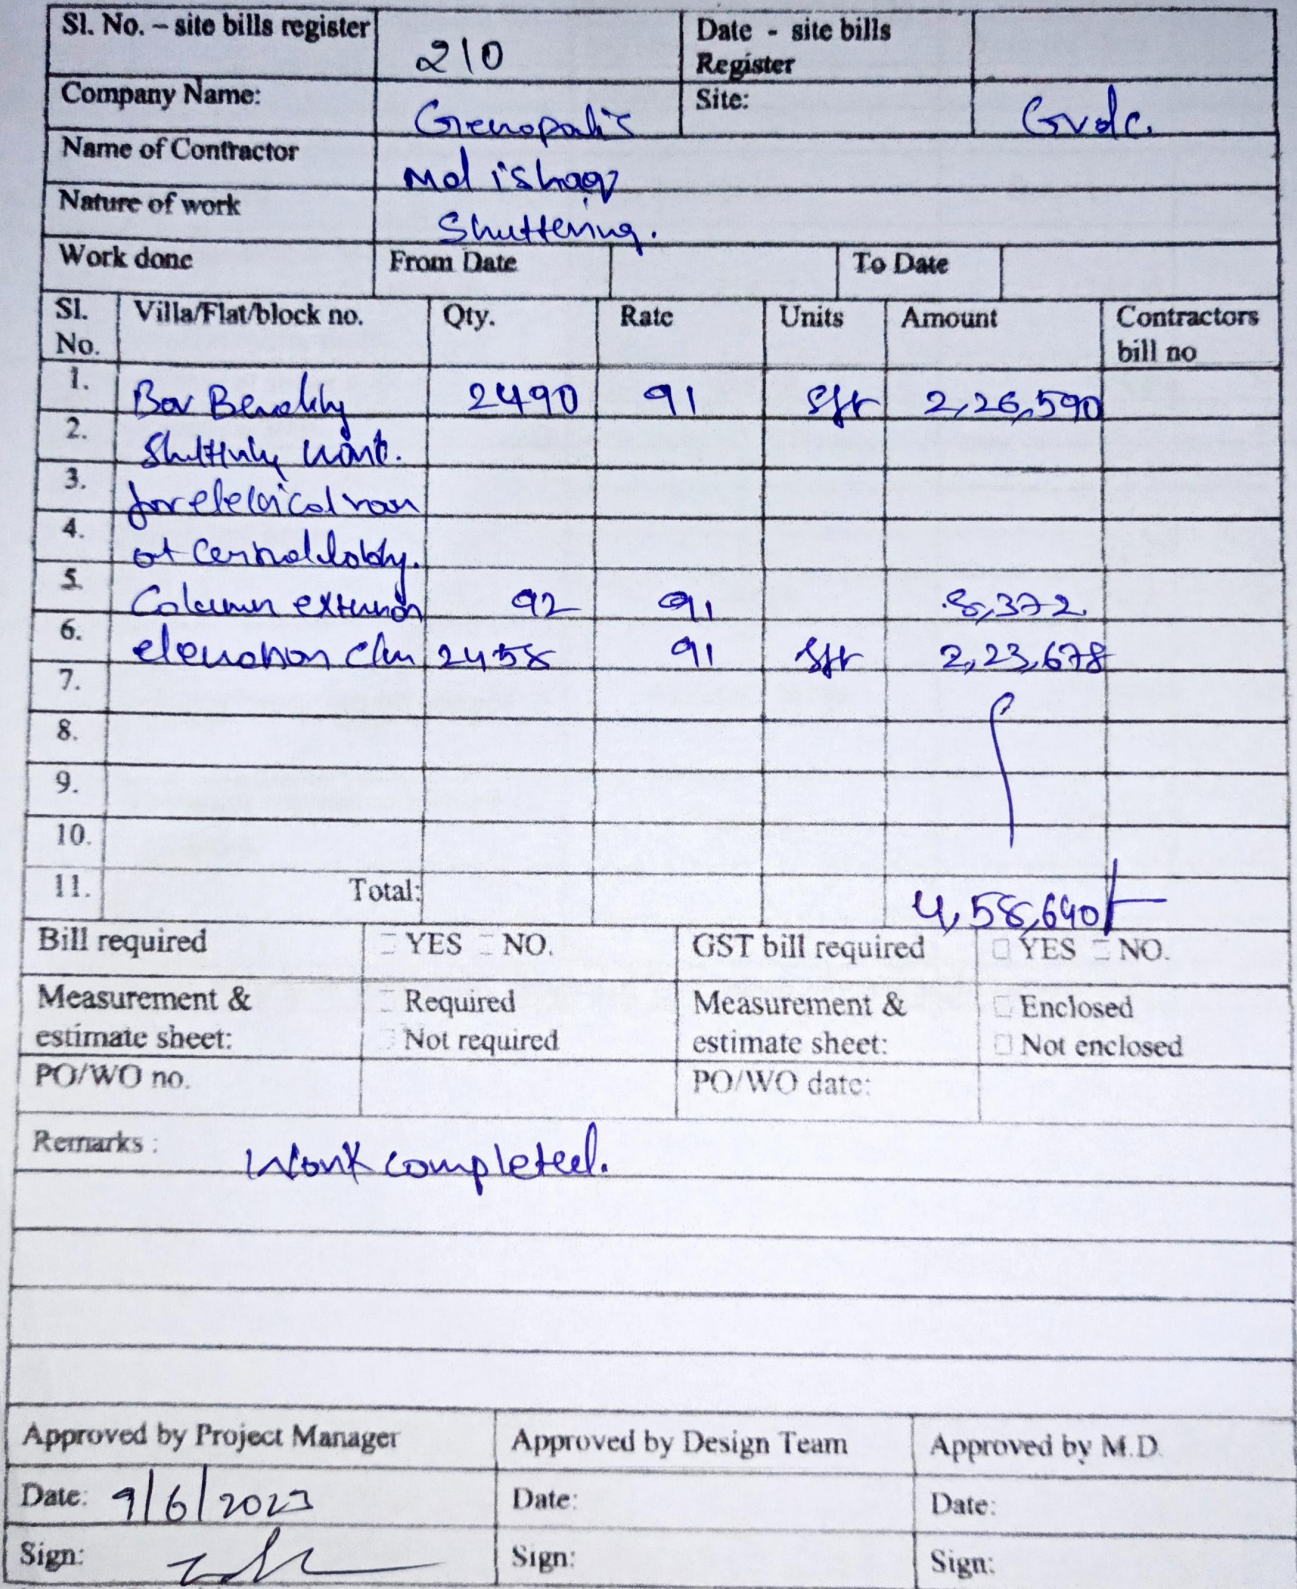 Sl. No. – site bills register 210 Date - site bills Register
Company Name: Genopolis Site: Gvdc.
Name of Contractor Md ishaq
Nature of work Shuttering.
Work done From Date To Date
Sl. No. Villa/Flat/block no. Qty. Rate Units Amount Contractors bill no
1. 2490 91 sft 2,26,590
2.
3. for
4. at lobby.
5. Column 92 91 8,372
6. 2458 91 sft 2,23,678
7.
8.
9.
10.
11. Total: 4,58,640/-
Bill required YES NO. GST bill required YES NO.
Measurement & estimate sheet: Required Not required Measurement & estimate sheet: Enclosed Not enclosed
PO/WO no. PO/WO date:
Remarks : Work completed.
Approved by Project Manager Approved by Design Team Approved by M.D.
Date: 9/6/2023 Date: Date:
Sign: Sign: Sign: